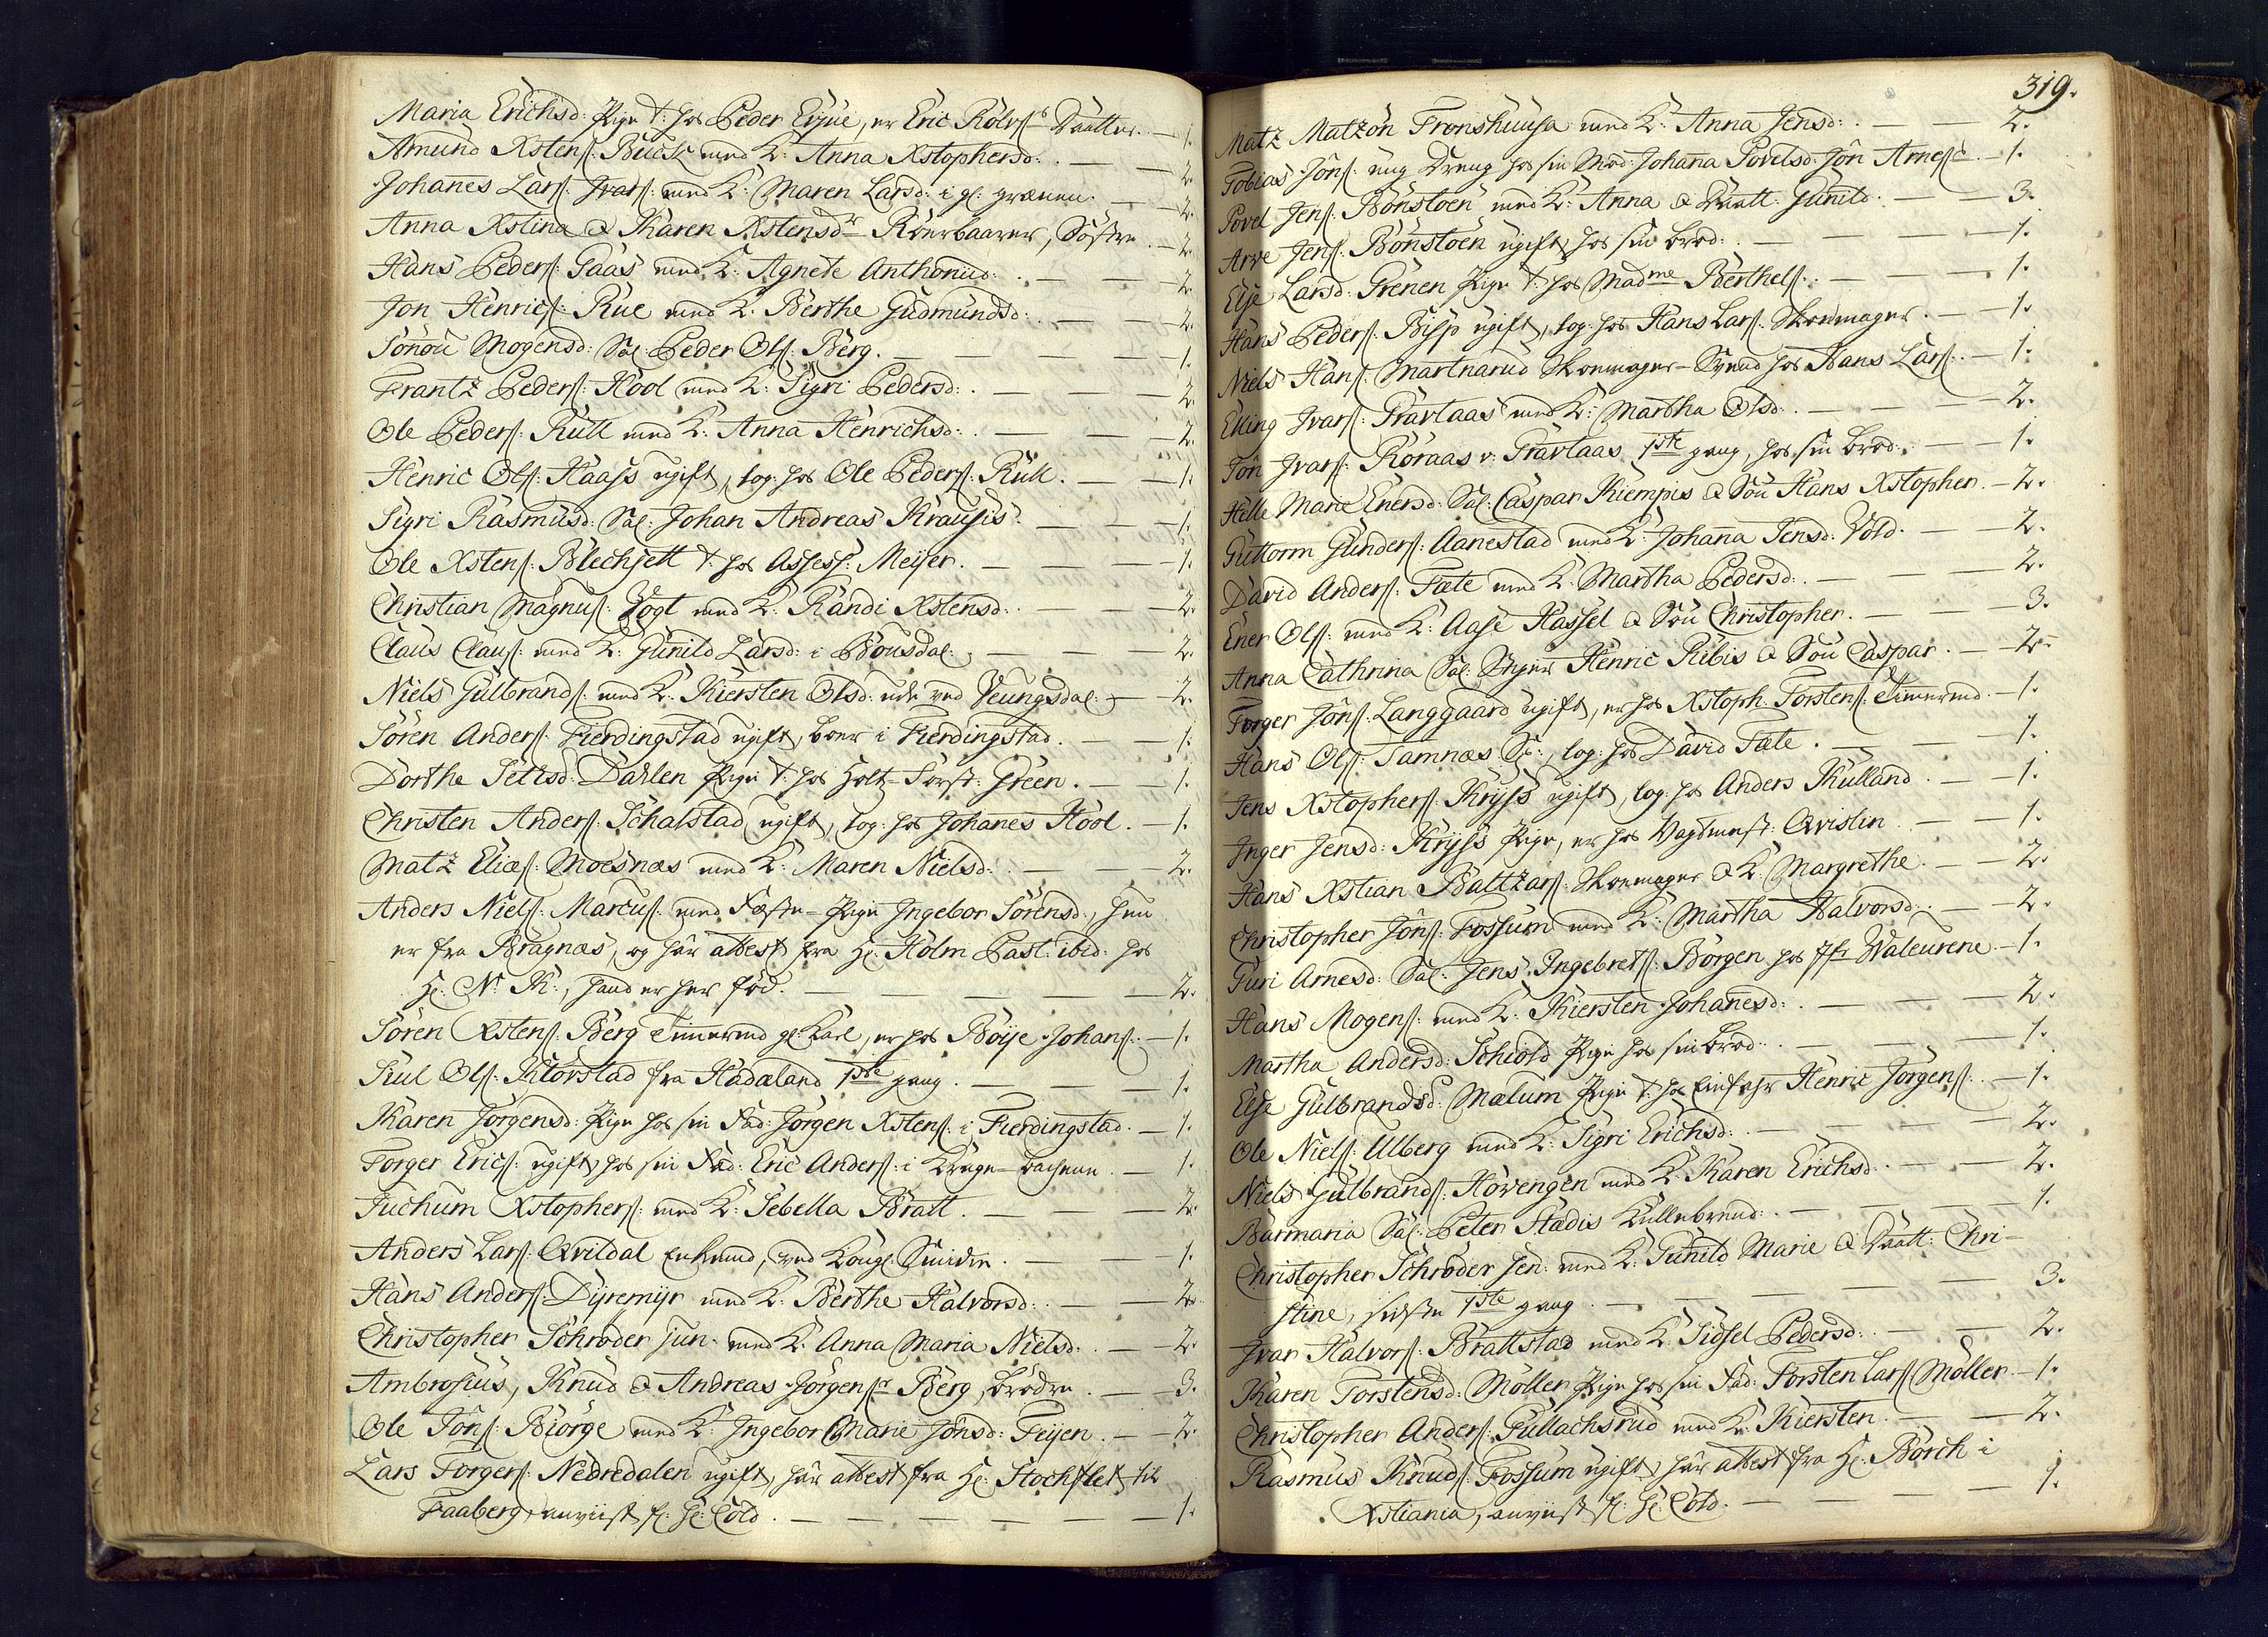 Maria Erichsd: Pige t: hos Peder Eyie, er Eric Rolfs: Daatter. — 1.
Amund Xstens: Buck med K: Anna Xstophersd: — 2.
Johanes Lars: Ivars: med K: Maren Larsd: i gl: grænen. — 2.
Anna Xstina & Karen Xstensdr Rörbaarer, Söstre. — 2.
Hans Peders: Gaas med K: Agnete Anthonid: — 2.
Jon Henrics: Rue med K: Berthe Gudmundsd: — 2.
Sönou Mogensd: Sal: Peder Ols: Berg. — 1.
Frantz Peders: Hool med K: Sigri Pedersd: — 2.
Ole Peders: Rull med K: Anna Henrichsd: — 2.
Henric Ols: Haass ugift, log: hos Ole Peders: Rull. — 1.
Sigri Rasmusd: Sal: Johan Andreas Krausis. — 1.
Ole Xstens: Blechsett t: hos Assess: Meijer. — 1.
Christian Magnus: Vogt med K: Randi Xstensd: — 2.
Claus Claus: med K: Gunild Larsd: i Bousdal: — 2.
Niels Gulbrands: med K: Kiersten Olsd: ude ved Jeungsdal: — 2.
Sören Anders: Fierdingstad ugift, boer i Fierdingstad. — 1.
Dorthe Siellsd: Dahlen Pige t: hos Holtz-Först: Green. — 1.
Christen Anders: Schalstad ugift, log: hos Johanes Hool. — 1.
Matz Elias: Moesnæs med K: Maren Nielsd: — 2.
Anders Niels: Marcus: med Fæste-Pige Ingebor Sörensd:, hun
er fra Bragnæs, og har attest fra Hr: Holm Past: ibid: hos
Hr: N: K:, hand er her föd. — 2.
Sören Xstens: Berg Timermd gl: Karl, er hos Böije Johans: — 1.
Kul Ols: Klörstad fra Hadæland 1ste gang. — 1.
Karen Jörgensd: Pige hos sin Fad: Jörgen Xstens: i Fierdingstad. — 1.
Torger Erics: ugift, hos sin Fad: Eric Anders: i Krage-bachene. — 1.
Tuchum Xstophers: med K: Sebella Bratt. — 2.
Anders Lars: Qvildal Enkemd, ved Kongl: Smidie. — 1.
Hans Anders: Dyremyr med K: Berthe Halvorsd: — 2.
Christopher Schroder jun: med K: Anna Maria Nielsd: — 2.
Ambrosius, Knud & Andreas Jörgensr Berg, brödre. — 3.
Ole Jöns: Biörge med K: Ingebor Marie Jönsd: Feijen. — 2.
Lars Torgers: Nedredalen ugift, har attest fra Hr: Stochflet til
Faaberg, anviist fr: Hr: Cold. — 1.
319.
Matz Matzön Fronshuusa med K: Anna Jensd: — 2.
Tobias Jöns: ung Dreng hos sin Mod: Johana Povelsd: Jön Arnes: — 1.
Povel Jens: Bönstoen med K: Anna & Daatt: Gunild. — 3.
Arve Jens: Bönstoen ugift, hos sin brod: — 1.
Else Larsd: Grenen Pige t: hos Madme Berthels: — 1.
Hans Peders: Bisp ugift, log: hos Hans Lars: Skoemager. — 1.
Niels Hans: Martnarud Skoemager-Svend hos Hans Lars: — 1.
Elling Ivars: Gravlaas med K: Martha Olsd: — 2.
Jön Ivars: Röraas v: Gravlaas 1ste gang, hos sin brod: — 1.
Helle Marie Enersd: Sal: Caspar Kiempis & Sön Hans Xstopher. — 2.
Guttorm Gunders: Aanestad med K: Johana Jensd: Vold. — 2.
David Anders: Fæte med K: Martha Pedersd: — 2.
Ener Ols: med K: Aase Hassel & Sön Christopher. — 3.
Anna Cathrina Sal: Stiger Henric Ribis & Sön Caspar. — 2.
Torger Jöns: Langgaard ugift, er hos Xstoph: Torstens: Timermd. — 1.
Hans Ols: Tamnæs Sr:, log: hos David Fæte. — 1.
Jens Xstophers: Kryss ugift, log: hos Anders Kulland. — 1.
Inger Jensd: Kryss Pige, er hos Vagtmest: Qvislin. — 1.
Hans Xstian Baltzars: Skoemager & K: Margrethe. — 2.
Christopher Jöns: Fossum med K: Martha Halvorsd: — 2.
Guri Arnesd: Sal: Jens Ingebrets: Börgen hos Jfr Waleurene. — 1.
Hans Mogens: med K: Kiersten Johanesd: — 2.
Martha Andersd: Schiold Pige hos sin brod: — 1.
Else Gulbrandsd: Mælum Pige t: hos Einfahr Henric Jörgens: — 1.
Ole Niels: Ulberg med K: Sigri Erichsd: — 2.
Niels Gulbrands: Hövengen med K: Karen Erichsd: — 2.
Barmaria Sal: Peter Stadis Kullebrend: — 1.
Christopher Schroder Sen: med K: Gunild Marie & Daatt: Chri-
stine, sidste 1ste gang. — 3.
Ivar Halvors: Brattstad med K: Sidsel Pedersd: — 2.
Karen Torstensd: Möller Pige hos sin Fad: Torsten Lars: Möller. — 1.
Christopher Anders: Gullachsrud med K: Kiersten. — 2.
Rasmus Knuds: Fossum ugift, har attest fra Hr: Borch i
Xstiania, anviist fr: Hr: Cold. — 1.